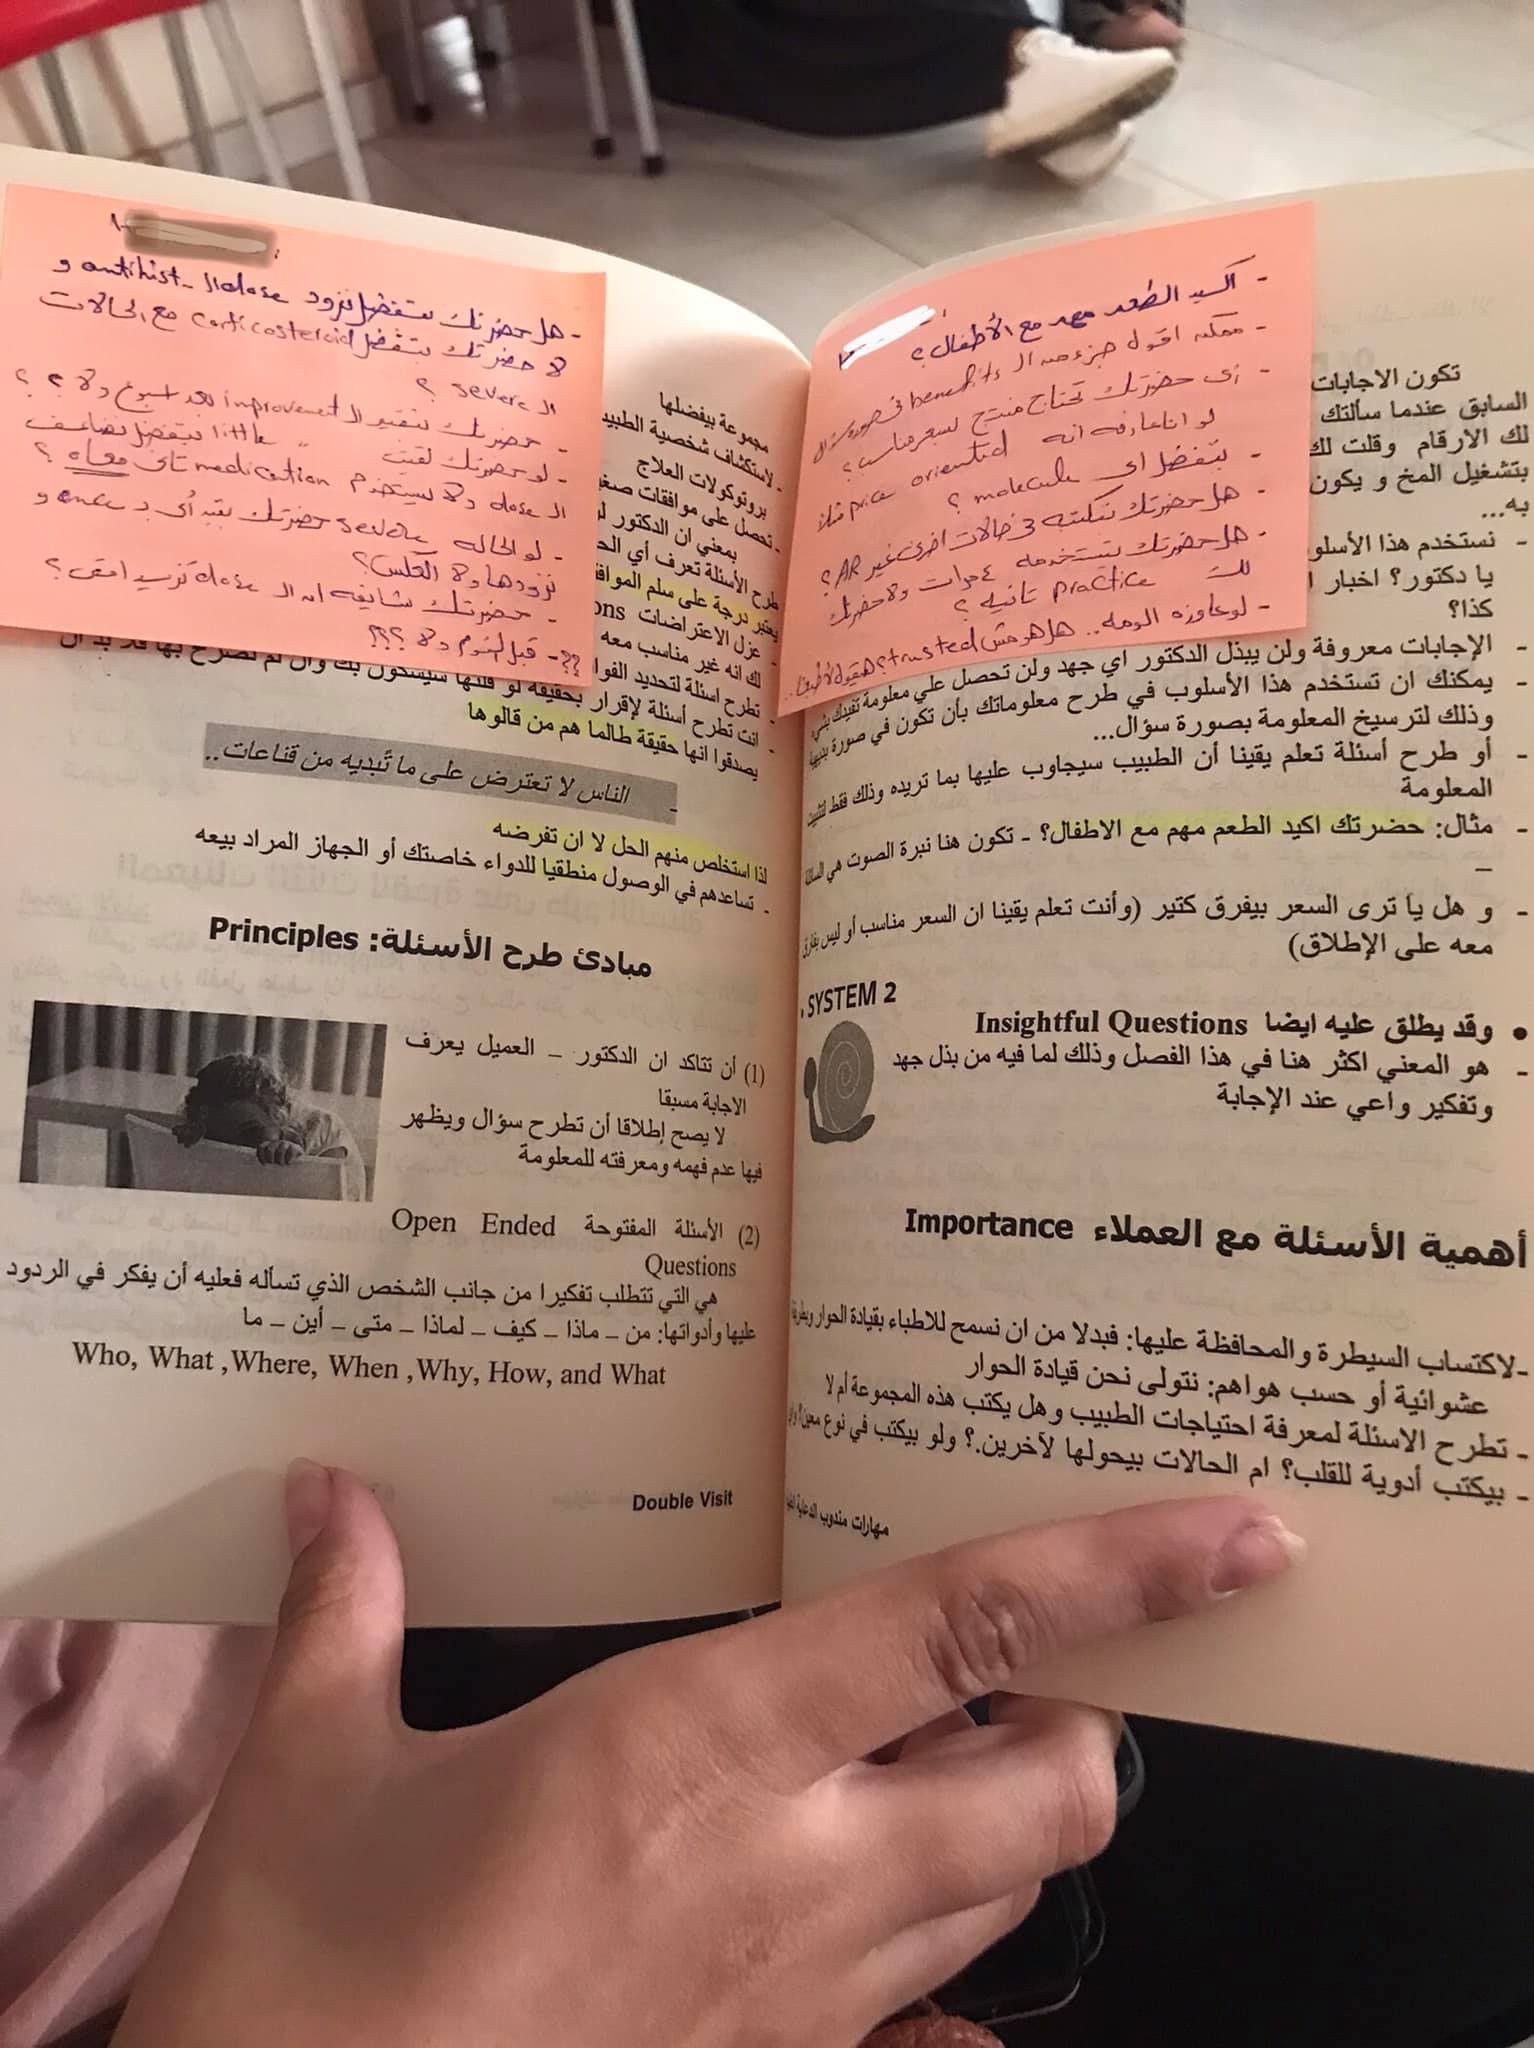 - اكيد الطعم مهم مع الأطفال؟
- ممكن اقول جزء من الـ benefits في صورة سؤال
- أى حضرتك تحتاج منتج بسعر مناسب؟
لو انا عارفه انه price oriented مثلاً
- بتفضل اى molecule؟
- هل حضرتك بتكتبه فى حالات اخرى غير AR؟
- هل حضرتك بتستخدمه مرات ولا حضرتك
لك practice تانيه؟
تكون الاجابات
السابق عندما سألتك
لك الارقام وقلت لك
بتشغيل المخ و يكون
به...
- نستخدم هذا الأسلوب
يا دكتور؟ اخبار
كذا؟
- الإجابات معروفة ولن يبذل الدكتور اي جهد ولن تحصل علي معلومة تفيدك بشيء
- يمكنك ان تستخدم هذا الأسلوب في طرح معلوماتك بأن تكون في صورة
وذلك لترسيخ المعلومة بصورة سؤال...
- أو طرح أسئلة تعلم يقينا أن الطبيب سيجاوب عليها بما تريده وذلك فقط لتثبيت
المعلومة
- مثال: حضرتك اكيد الطعم مهم مع الاطفال؟ - تكون هنا نبرة الصوت هي السائلة
–
- و هل يا ترى السعر بيفرق كتير (وأنت تعلم يقينا ان السعر مناسب أو ليس بفارق
معه على الإطلاق)
SYSTEM 2
• وقد يطلق عليه ايضا Insightful Questions
- هو المعني اكثر هنا في هذا الفصل وذلك لما فيه من بذل جهد
وتفكير واعي عند الإجابة
أهمية الأسئلة مع العملاء Importance
-لاكتساب السيطرة والمحافظة عليها: فبدلا من ان نسمح للاطباء بقيادة الحوار وبطريقة
عشوائية أو حسب هواهم: نتولى نحن قيادة الحوار
- تطرح الاسئلة لمعرفة احتياجات الطبيب وهل يكتب هذه المجموعة أم لا
- بيكتب أدوية للقلب؟ ام الحالات بيحولها لآخرين.؟ ولو بيكتب في نوع معين؟
مهارات مندوب الدعاية
- هل حضرتك بتفضل نزود dose الـ antihist و
لا حضرتك بتفضل corticosteroid مع الحالات
الـ severe؟
- حضرتك بتقيم الـ improvement بعد اسبوع ولا؟؟
- لو حضرتك لقيت " little بتفضل تضاعف
الـ dose ولا بيستخدم medication تانى معاه؟
- لو الحاله severe حضرتك بتبدأى بـ once و
نزودها ولا العكس؟
- حضرتك شايفه ان الـ dose تزيد امتى؟
؟؟- قبل النوم ولا؟؟؟
مجموعة بيفضلها
- لاستكشاف شخصية الطبيب
بروتوكولات العلاج
- تحصل على موافقات
بمعني ان الدكتور
طرح الأسئلة تعرف أي
يعتبر درجة على سلم
- عزل الاعتراضات
لك انه غير مناسب معه
- تطرح اسئلة لتحديد
- انت تطرح أسئلة لإقرار بحقيقة لو قلتها سيشكون بك وان لم تصرح بها فلا بد أن
يصدقوا انها حقيقة طالما هم من قالوها
- الناس لا تعترض على ما تُبديه من قناعات..
لذا استخلص منهم الحل لا ان تفرضه
- تساعدهم في الوصول منطقيا للدواء خاصتك أو الجهاز المراد بيعه
مبادئ طرح الأسئلة: Principles
(1) أن تتاكد ان الدكتور – العميل يعرف
الاجابة مسبقا
لا يصح إطلاقا أن تطرح سؤال ويظهر
فيها عدم فهمه ومعرفته للمعلومة
(2) الأسئلة المفتوحة Open Ended
Questions
هي التي تتطلب تفكيرا من جانب الشخص الذي تسأله فعليه أن يفكر في الردود
عليها وأدواتها: من – ماذا – كيف – لماذا – متى – أين – ما
Who, What ,Where, When ,Why, How, and What
Double Visit